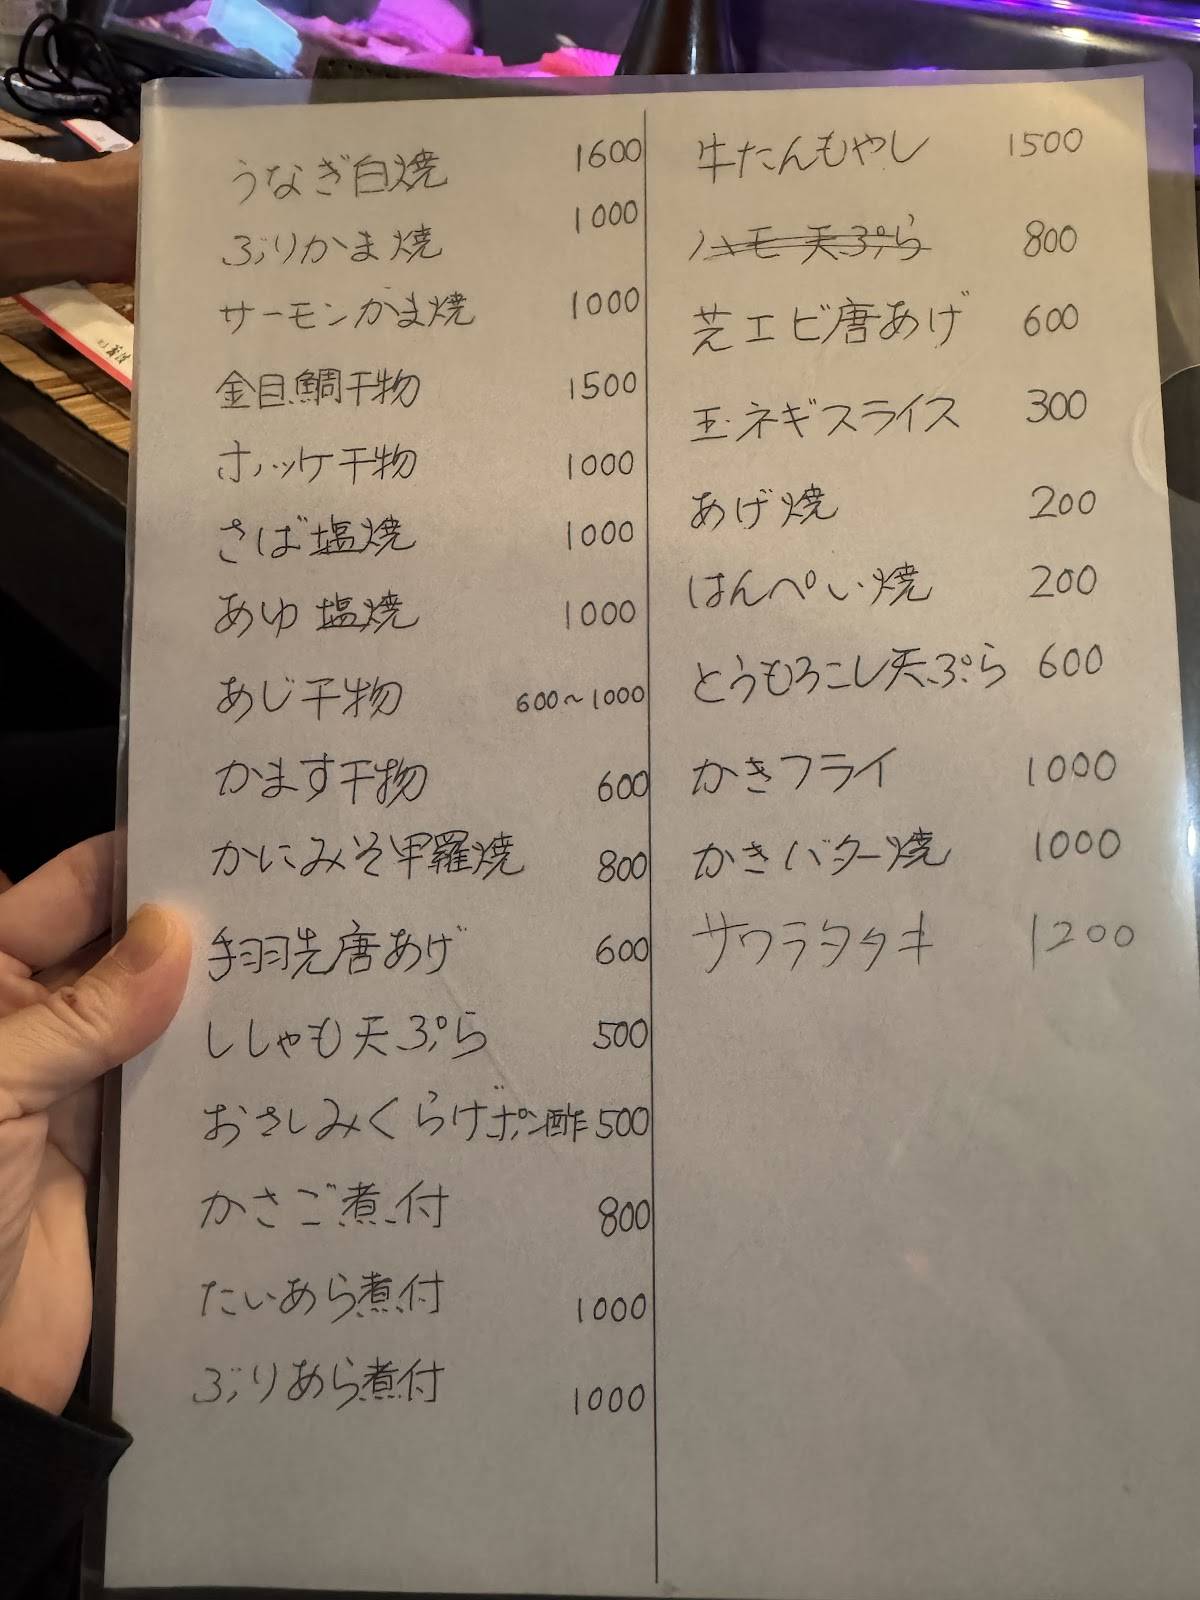 うなぎ白焼 1600
ぶりかま焼 1000
サーモンかま焼 1000
金目鯛干物 1500
ホッケ干物 1000
さば塩焼 1000
あゆ塩焼 1000
あじ干物 600~1000
かます干物 600
かにみそ甲羅焼 800
手羽先唐あげ 600
ししゃも天ぷら 500
おさしみくらげポン酢 500
かさご煮付 800
たいあら煮付 1000
ぶりあら煮付 1000
牛たんもやし 1500
ハモ天ぷら 800
芝エビ唐あげ 600
玉ネギスライス 300
あげ焼 200
はんぺい焼 200
とうもろこし天ぷら 600
かきフライ 1000
かきバター焼 1000
サワラタタキ 1200